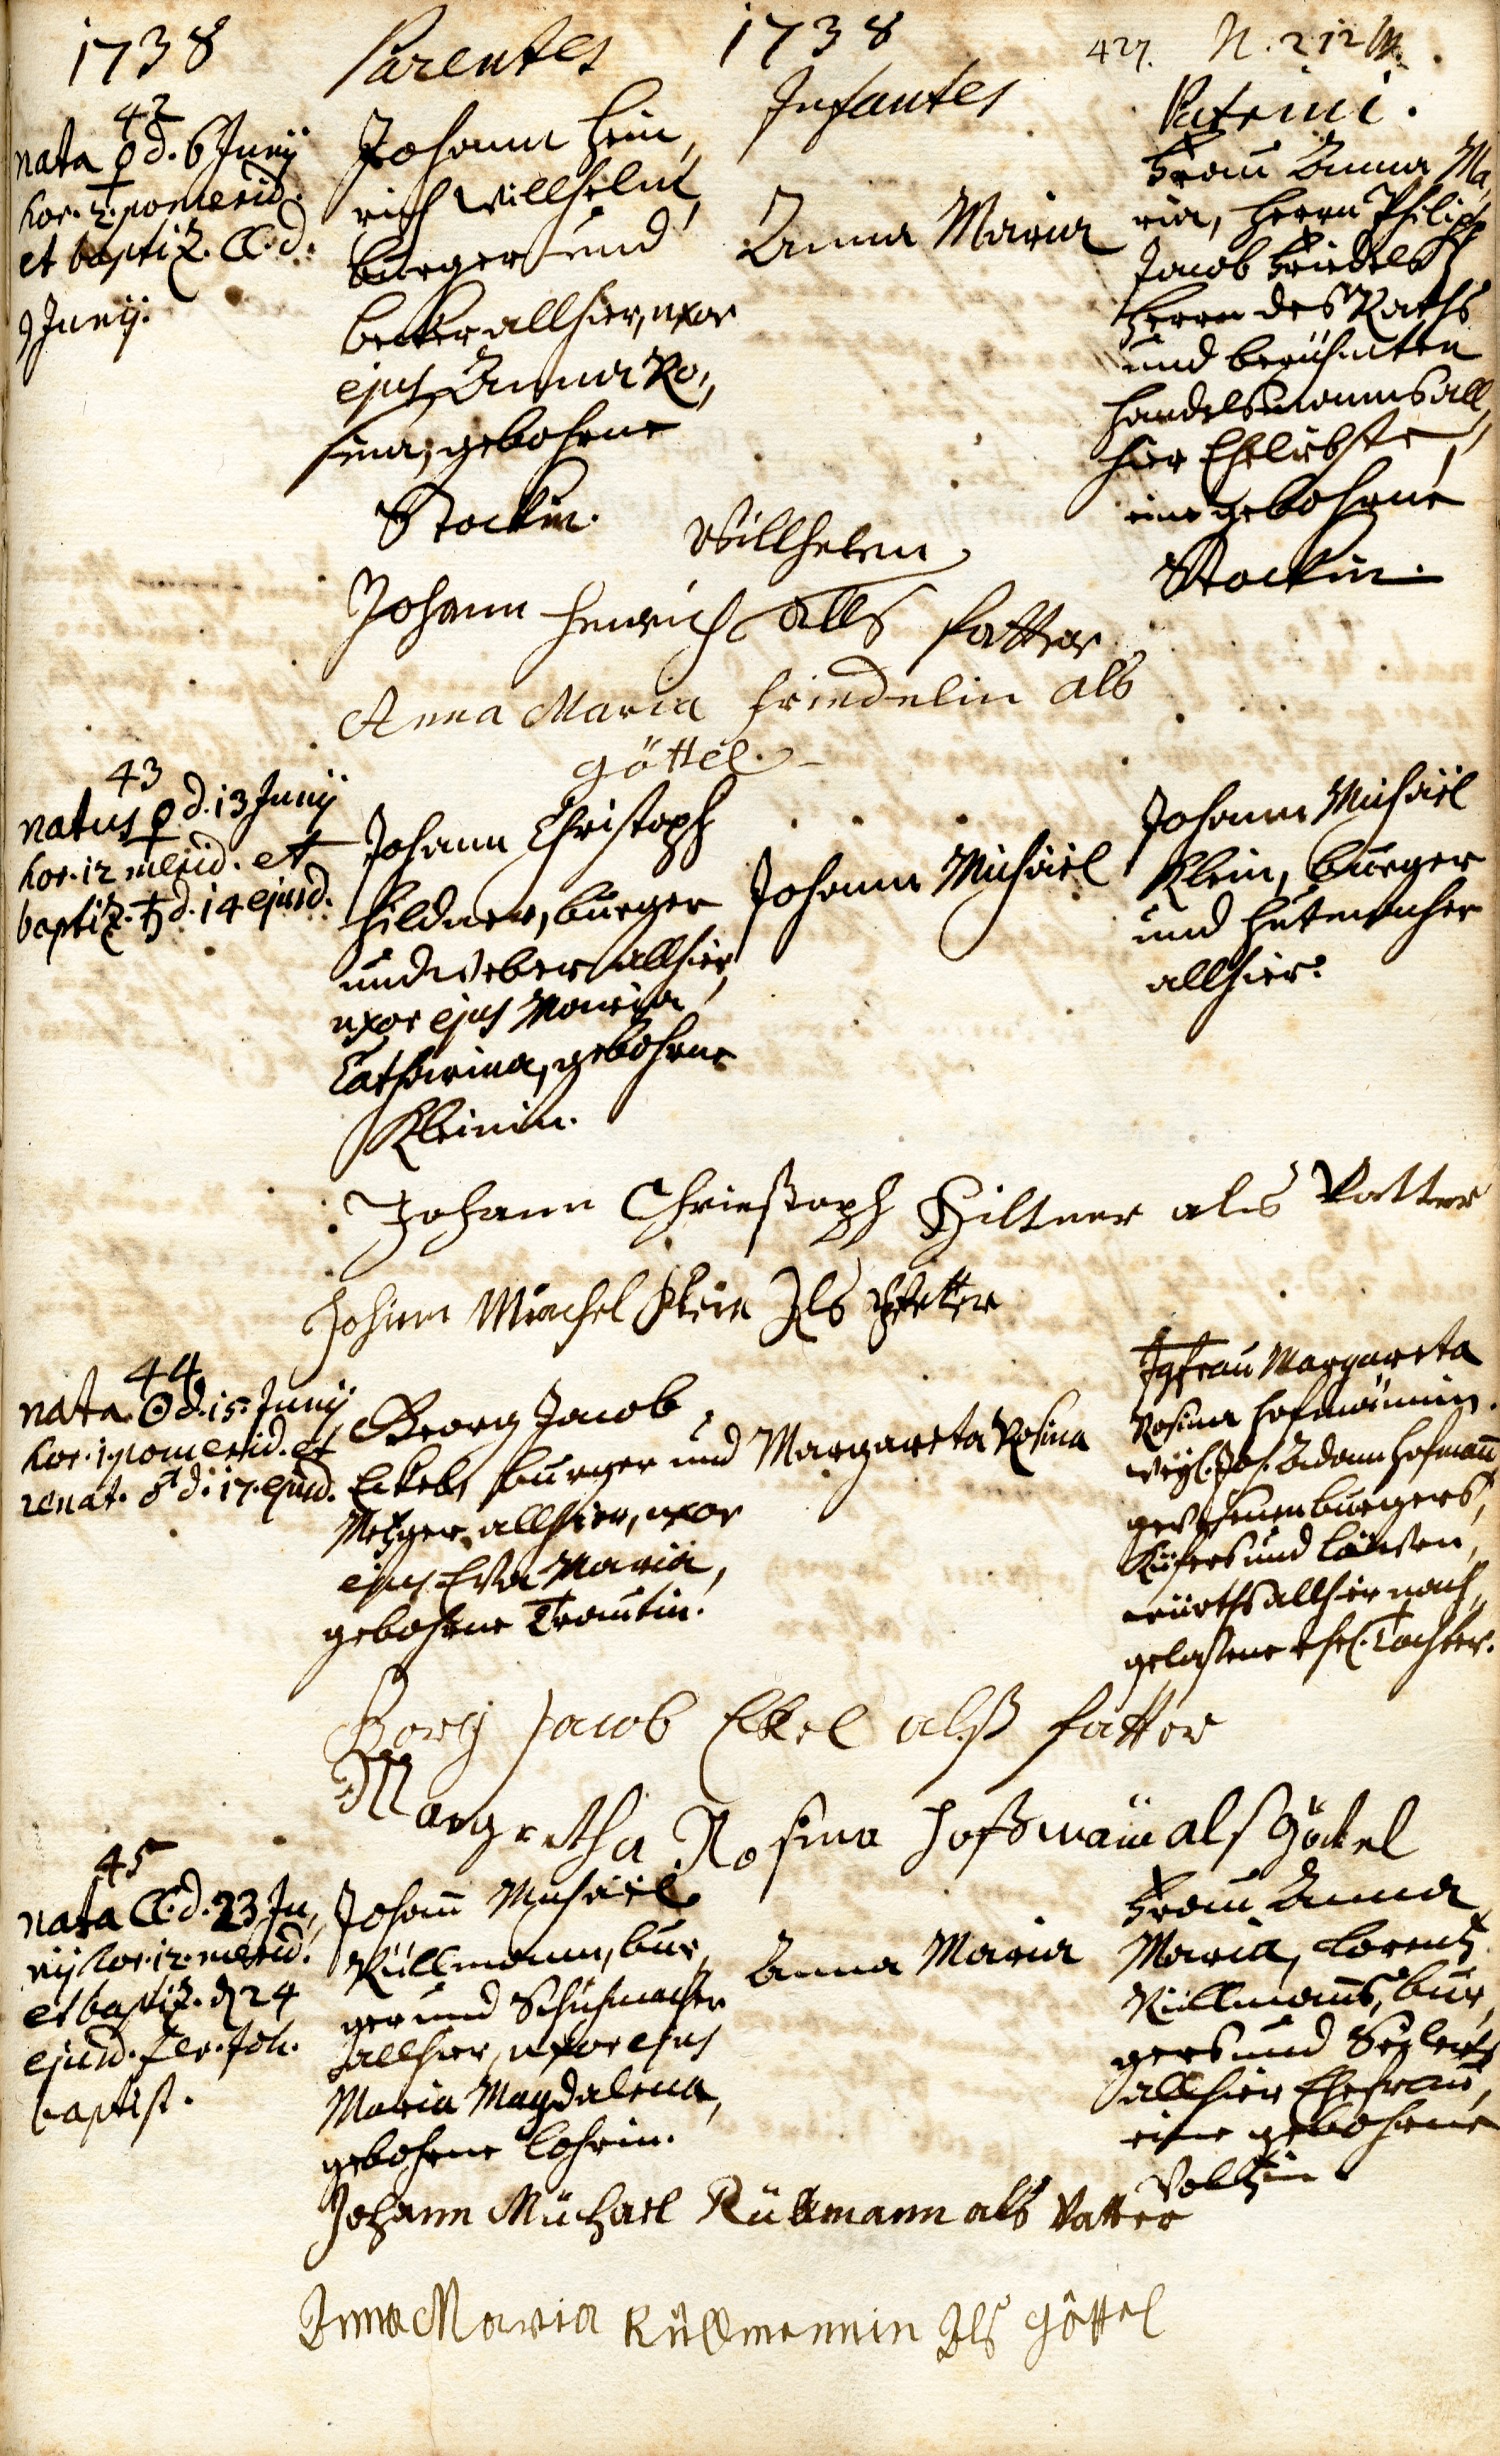 1738 Parentes 1738 Infantes 427. N. 212
Patrini.
42
nata ♀ d. 6 Junij
hor. 2. pomerid.
et baptiz. ☾ d.
9 Junij.
Johann Hein,
rich Willhelm,
burger und
becker allhier, uxor
ejus Anna Ro,
sina, gebohrne
Stockin.
Anna Maria
Frau Anna Ma,
ria, Herrn Philipp
Jacob Friedels
Herrn des Raths
und berühmten
Handelsmanns all,
hier Eheliebste,
eine gebohrne
Stockin.
Willhelm
Johann Henrich alls fatter
Anna Maria Friedelin als
göttel.
43
natus ♀ d. 13 Junij
hor. 12 merid. et
baptiz. ♄ d. 14 ejusd.
Johann Christoph
Hildner, burger
und weber allhier,
uxor ejus Maria
Catharina, gebohrne
Kleinin.
Johann Michäel
Johann Michäel
Klein, burger
und Hutmacher
allhier.
Johann Christoph Hiltner als Vatter
Johann Michel Klein Als Pfetter
44
nata ☉ d. 15. Junij
hor. 1. pomerid. et
renat. ♂ d. 17. ejusd.
Georg Jacob
Eckel, burger und
Metzger allhier, uxor
ejus Eva Maria,
gebohrne Trautin.
Margareta Rosina
Jgfrau Margareta
Rosina Hofmännin.
weyl. Joh. Adam Hofmañ
gewesenen burgers,
Küfers und Löwen,
würths allhier nach,
gelassene ehel. Tochter.
Gorg Jacob Ekel alß fatter
Margretha Rosina Hofmäñin als Göttel
45
nata ☾ d. 23 Ju,
nij hor. 12. merid.
et baptiz. d 24
ejusd. fer. Joh.
baptist.
Johañ Michäel
Küllmann, bur,
ger und Schuhmacher
allhier, uxor ejus
Maria Magdalena,
gebohrne Lohrin.
Anna Maria
Frau Anna
Maria, Lorentz
Küllmañs, bur,
gers und Seylers
allhier Ehefrau,
eine gebohrne
Voltzin
Johann Müchael Küllmann als Vatter
Anna Maria Küllmennin Als göttel